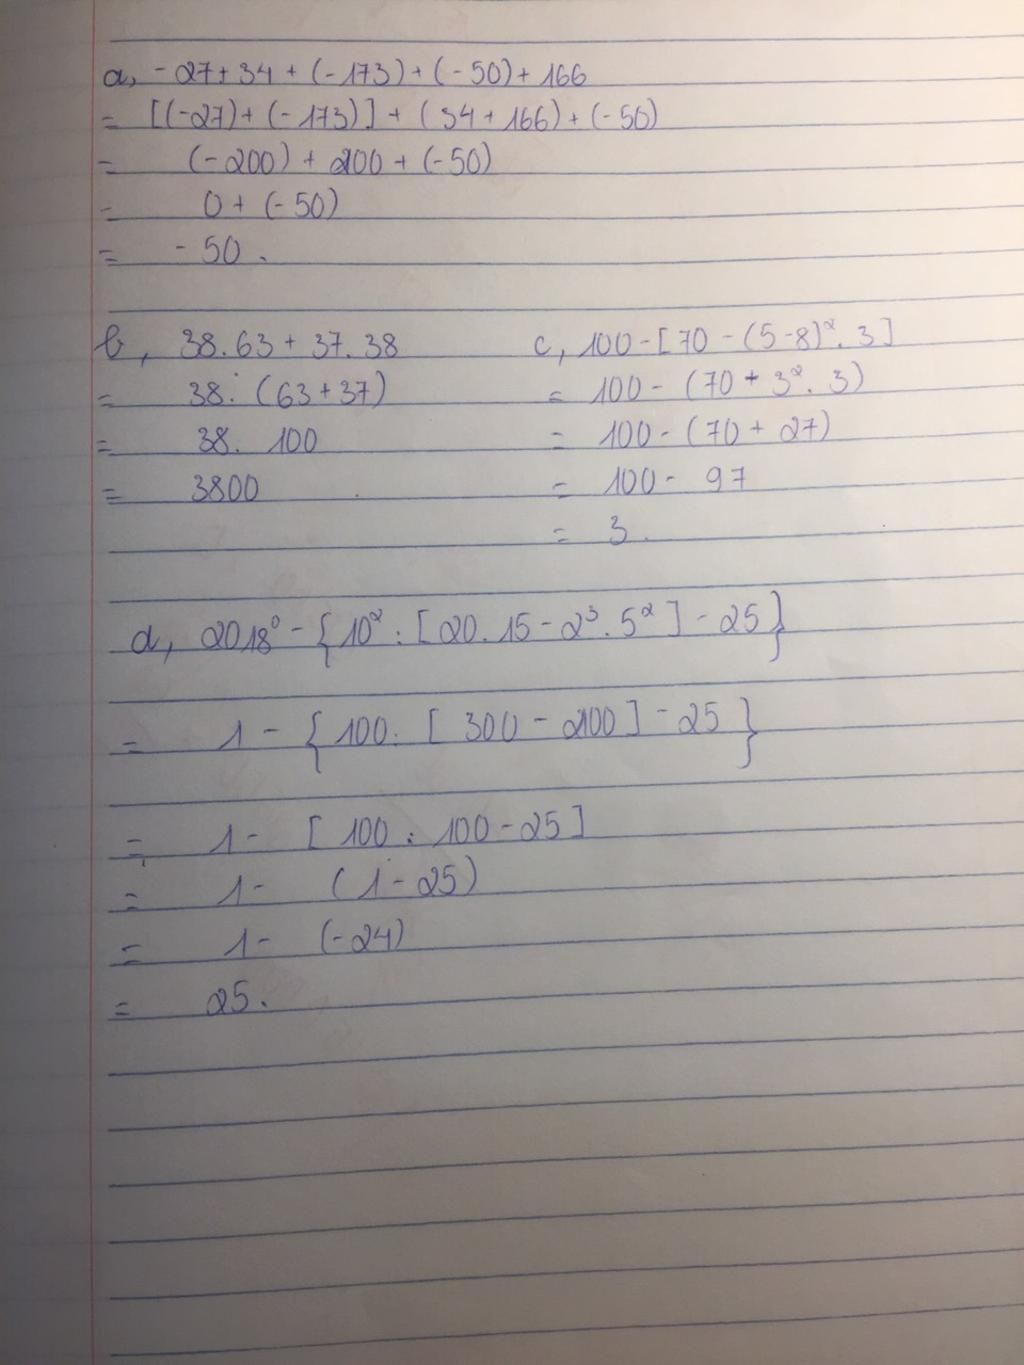 a, -27 + 34 + (-173) + (-50) + 166
= [(-27) + (-173)] + (34 + 166) + (-50)
= (-200) + 200 + (-50)
= 0 + (-50)
= -50.
b, 38.63 + 37.38
= 38. (63 + 37)
= 38. 100
= 3800
c, 100 - [70 - (5-8)². 3]
= 100 - (70 + 3². 3)
= 100 - (70 + 27)
= 100 - 97
= 3.
d, 2018⁰ - {10² : [20. 15 - 2³. 5²] - 25}
= 1 - {100 : [300 - 200] - 25}
= 1 - [100 : 100 - 25]
= 1 - (1 - 25)
= 1 - (-24)
= 25.